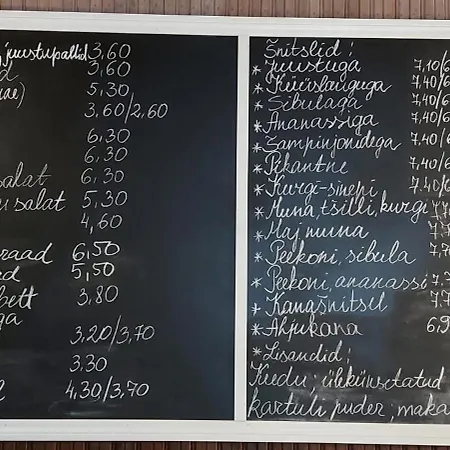 juustupallid 3,60
d 3,60
ne) 5,30
3,60/2,60
6,30
6,30
salat 6,30
salat 5,30
4,60
raad 6,50
ed 5,50
bett 3,80
ga
3,20/3,70
3,30
4,30/3,70
Šnitslid:
* Juustuga 7,10/6
* Küüslauguga 7,40/6
* Sibulaga 7,40/6
* Ananassiga 7,40/6
* Šampinjonidega 7,40/6
* Pikantne 7,40/6
* Kurgi-sinepi 7.40/6
* Muna, tšilli, kurgi 7,70
* Maj muna 7,7
* Peekoni, sibula 7,70
* Peekoni, ananassi 7,7
* Kanašnitsel 7,7
* Ahjukana 6,9
* Lisandid:
Keedu-, üleküpsetatud
kartuli puder, maka